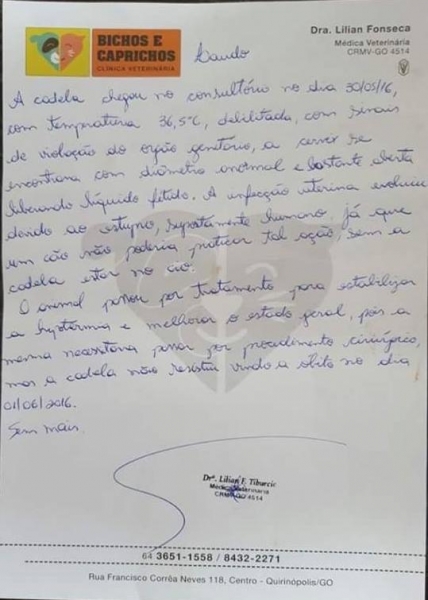 BICHOS E
CAPRICHOS
CLÍNICA VETERINÁRIA
Dra. Lilian Fonseca
Médica Veterinária
CRMV-GO 4514
Laudo
A cadela chegou no consultório no dia 30/05/16,
com temperatura 36,5°C, debilitada, com sinais
de violação do orgão genitário, a cervix se
encontrava com diâmetro anormal e bastante aberta
liberando líquido fétido. A infecção uterina evoluiu
devido ao estupro, supostamente humano, já que
um cão não poderia praticar tal ação, sem a
cadela estar no cio.
O animal passou por tratamento para estabilizar
a hipotermia e melhorar o estado geral, pois a
mesma necessitava passar por procedimento cirúrgico,
mas a cadela não resistiu vindo a obito no dia
01/06/2016.
Sem mais.
Drª. Lilian F. Tiburcio
Médica Veterinária
CRMV-GO 4514
64 3651-1558 / 8432-2271
Rua Francisco Corrêa Neves 118, Centro - Quirinópolis/GO